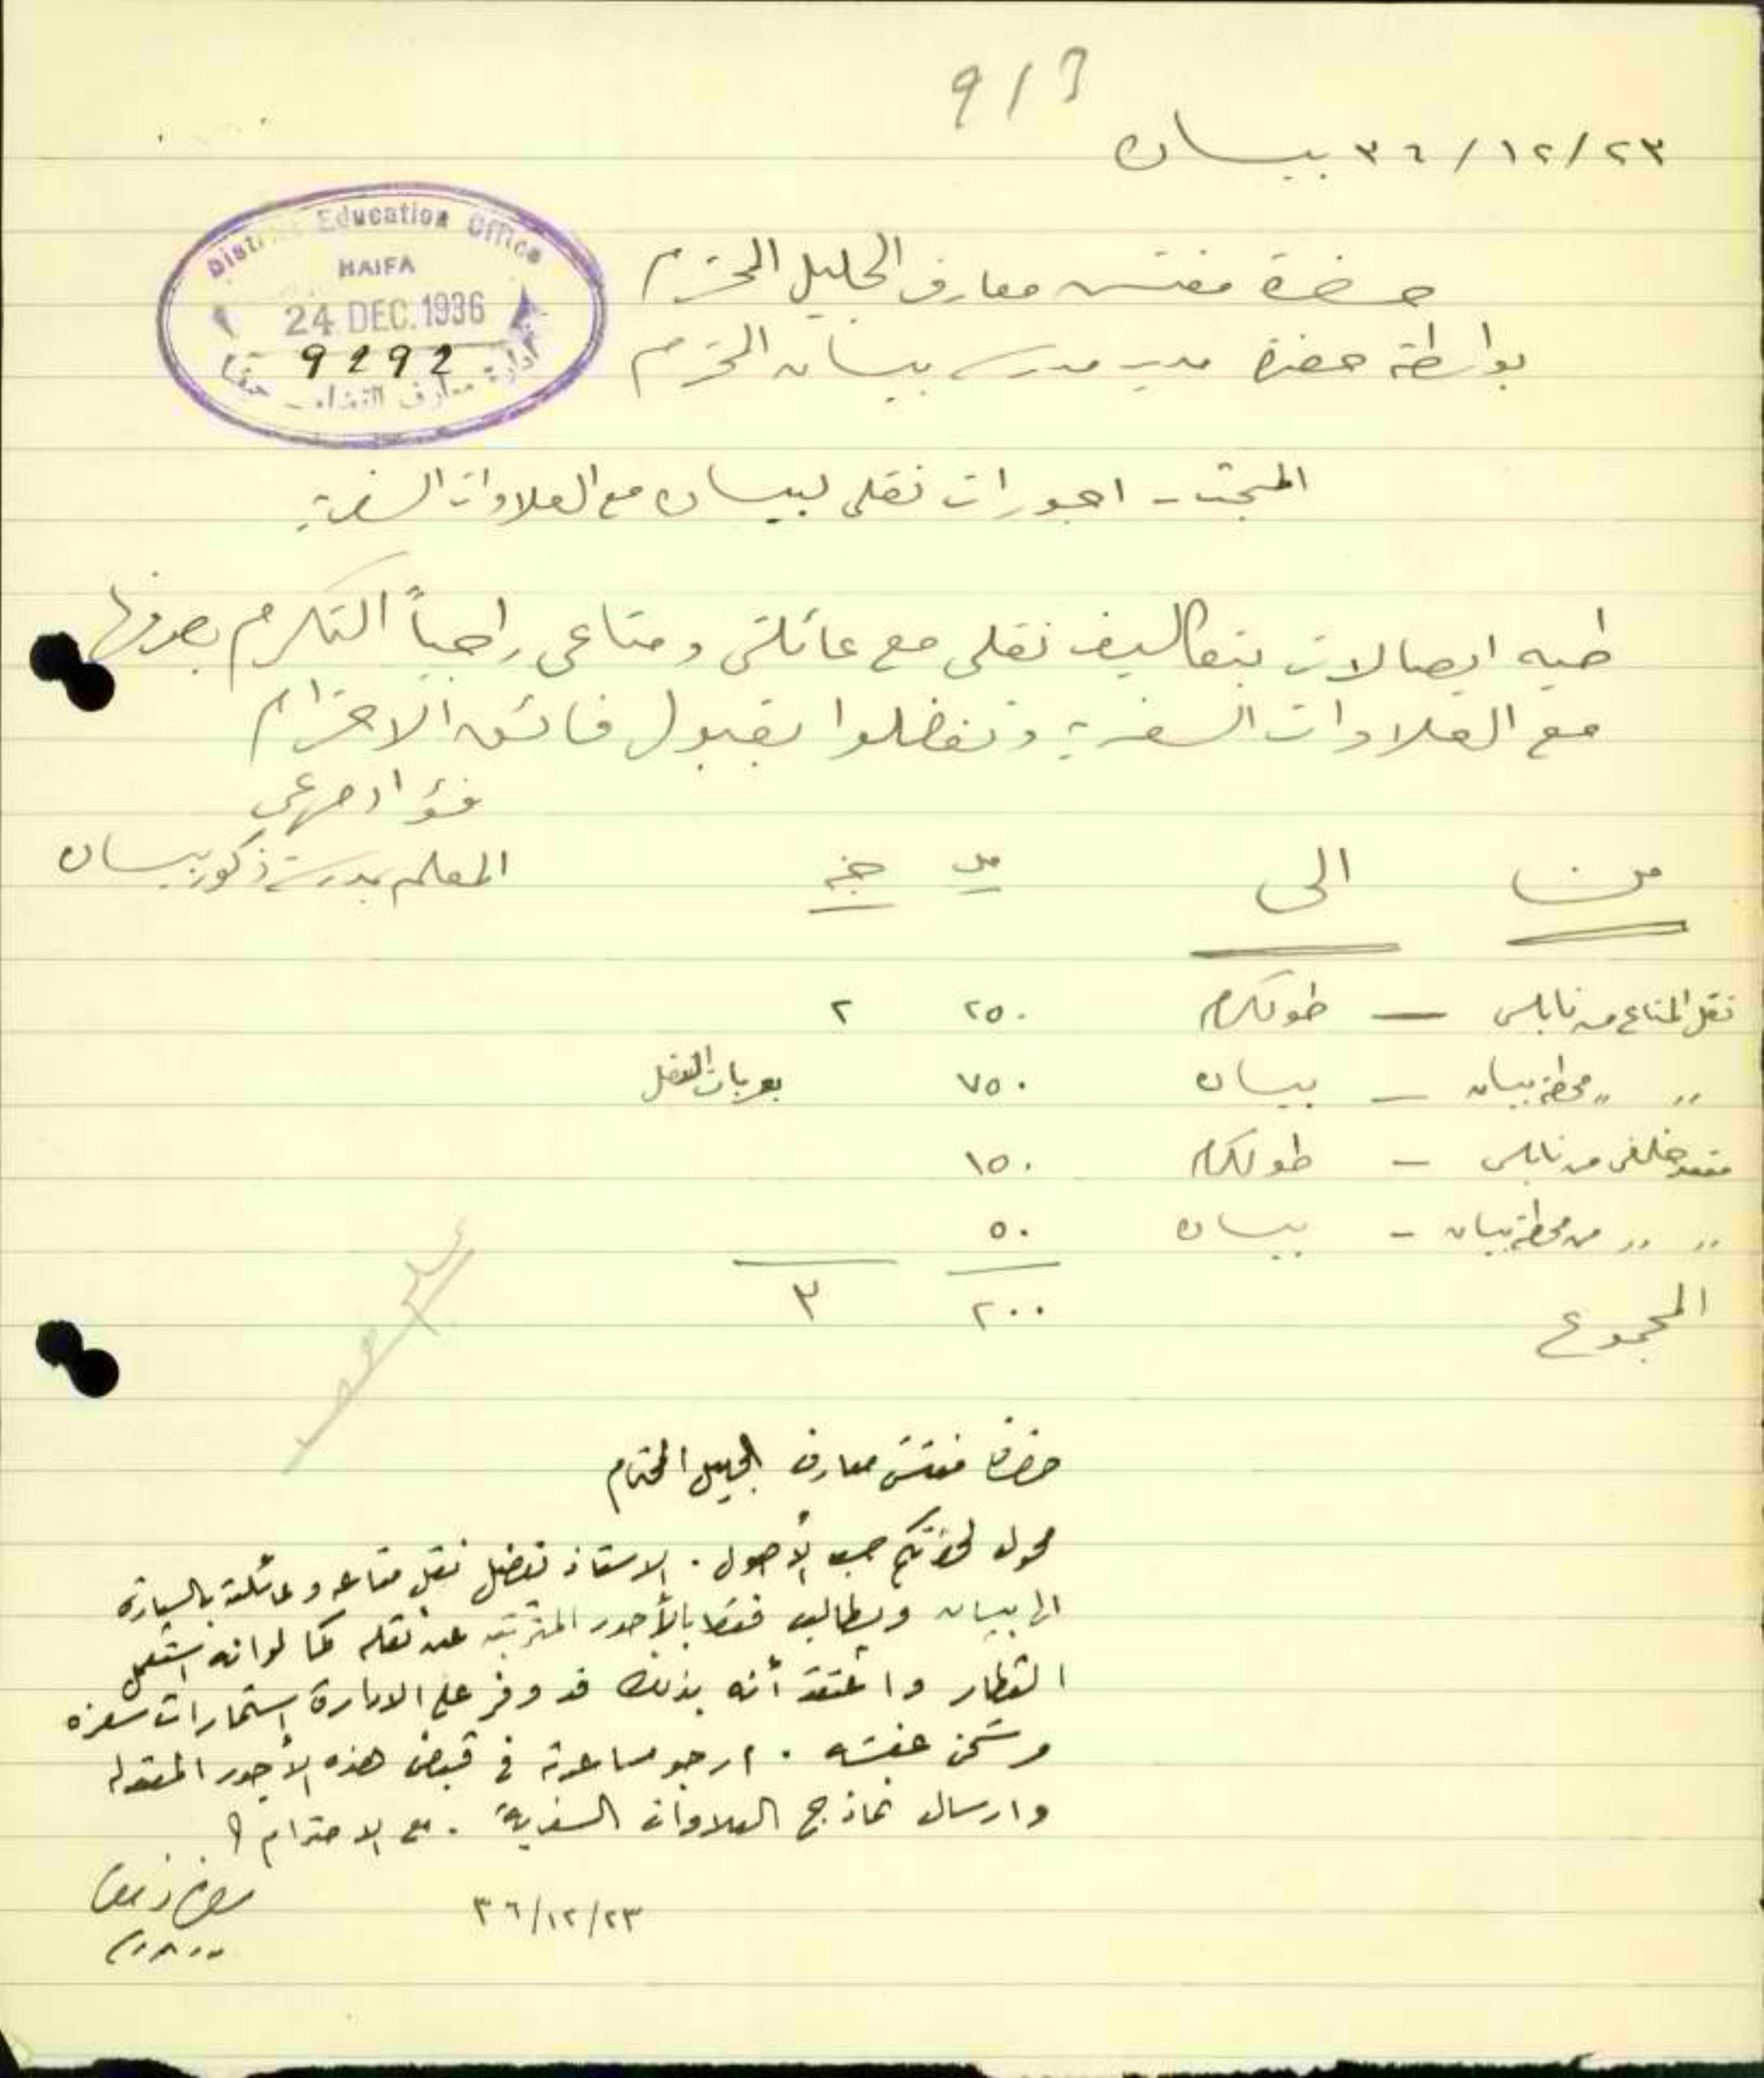 9/3
٣٦/١٢/٢٣ بيسان
District Education Office
HAIFA
24 DEC. 1936
9292
ادارة معارف القضاء حيفا
حضرة مفتش معارف الجليل المحترم
بواسطة حضرة مدير مدرسة بيسان المحترم
المبحث - اجورات نقلي لبيسان مع العلاوات السفرية
طيه ايصالات بتكاليف نقلي مع عائلتي ومتاعي راجياً التكرم بصرفها
مع العلاوات السفرية وتفضلوا بقبول فائق الاحترام
فؤاد مرعي
المعلم بمدرسة ذكور بيسان
من الى مل جنيه
نقل المتاع من نابلس — طولكرم ٢٥٠ ٢
" " محطة بيسان — بيسان ٧٥٠ بعربات النقل
مقعد خلفي من نابلس — طولكرم ١٥٠
" " من محطة بيسان — بيسان ٥٠
المجموع ٢٠٠ ٣
حضرة مفتش معارف الجليل المحترم
محول لحضرتكم حسب الأصول . الاستاذ تفضل نقل متاعه وعائلته بالسيارة
الى بيسان ويطالب فقط بالأجور المترتبة عند نقله كما لو انه استعمل
القطار واعتقد أنه بذلك قد وفر على الادارة استمارات سفره
وشحن عفشه . ارجو مساعدته في قبض هذه الأجور المعقولة
وارسال نماذج العلاوات السفرية . مع الاحترام
٣٦/١٢/٢٣